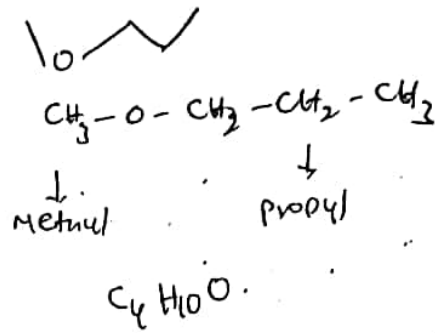 O
CH₃ - O - CH₂ - CH₂ - CH₃
↓ ↓
Methyl propyl
C₄ H₁₀ O.